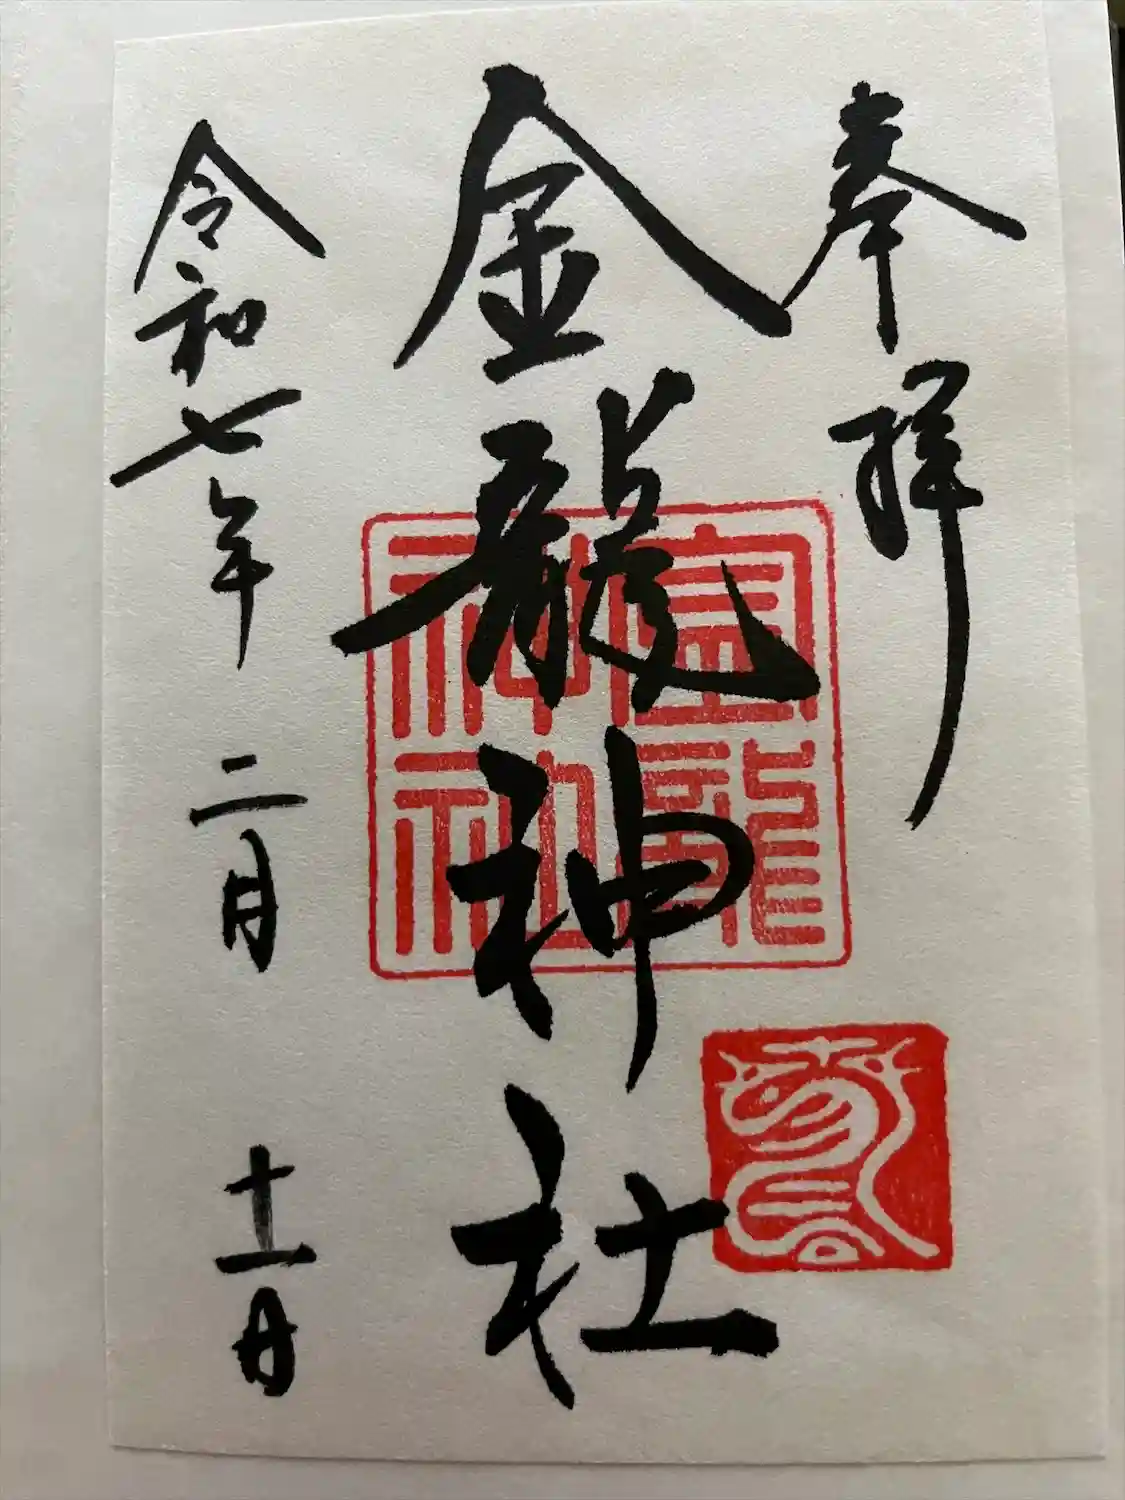 奉拝
金龍神社
金龍
神社
令和七年 二月 十一日